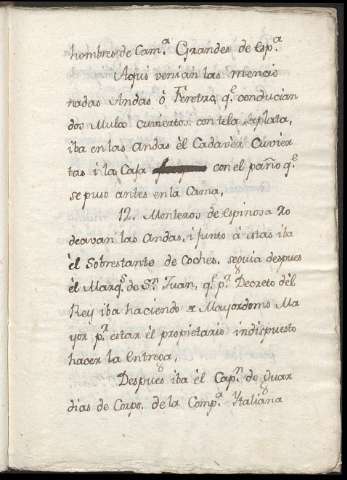 hombres de Cam.ª Grandes de Esp.ª
Aqui venian las mencio
nadas Andas ò Feretro q.ᵉ conducian
dos Mulas cuviertos con tela de plata,
iba en las Andas èl Cadaver Cuvier
tas i la Caja con el paño q.ᵉ
se puso àntes en la Cama,
12. Monteros de Espinosa Ro
deavan las Andas, i junto à estas iba
èl Sobrestante de Coches, seguia despues
èl Marq.ˢ de S.ⁿ Juan, q.ᵉ p.ʳ Decreto dèl
Rey iba haciendo de Mayordomo Ma
yor p.ʳ estar èl propietario indispuesto
hacer la Entrega,
Despues iba èl Cap.ⁿ de Guar
dias de Corps. de la Comp.ª Ytaliana